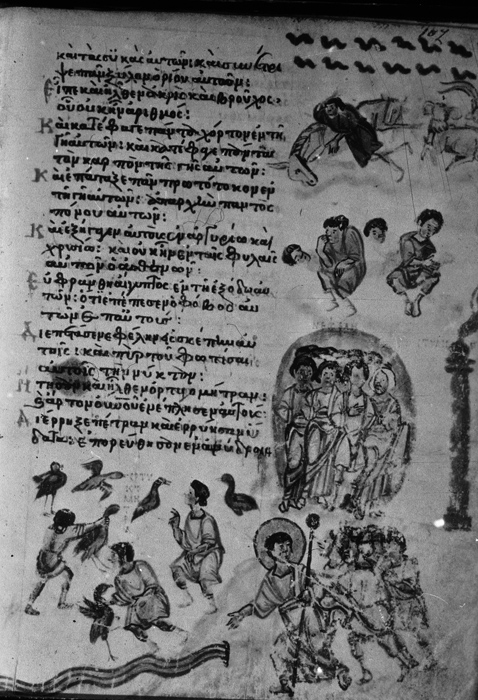 κατὰ συκὰς αὐτῶν· καὶ συνέτρι
ψε πᾶν ξύλον ὁρίου αὐτῶν:
Εἶπε καὶ ἦλθεν ἀκρὶς καὶ βροῦχος·
οὗ οὐκ ἦν ἀριθμος:
Καὶ κατέφαγε πάντα χόρτον ἐν τῇ
γῇ αὐτῶν: καὶ κατέφαγε πάντα
τὸν καρπὸν τῆς γῆς αὐτῶν:
Καὶ ἐπάταξε πᾶν πρωτότοκον ἐν
τῇ γῇ αὐτῶν: ἀπαρχὴν παντὸς
πόνου αὐτῶν:
Καὶ ἐξήγαγεν αὐτοὺς ἐν ἀργυρίω καὶ
χρυσίω: καὶ οὐκ ἦν ἐν ταῖς φυλαῖς
αὐτῶν ὁ ἀσθενῶν:
Εὐφράνθη αἴγυπτος ἐν τῇ ἐξόδω αὐ
τῶν: ὅτι ἐπέπεσεν ὁ φόβος αὐ
τῶν ἐπ αὐτούς:
Διεπέτασε νεφέλην εἰς σκέπην αὐ
τοῖς: καὶ πῦρ τοῦ φωτίσαι
αὐτοῖς τὴν νύκταν:
Ἤτησαν καὶ ἦλθεν ὀρτυγομήτρα:
καὶ ἄρτον οὐνοῦ ἐνέπλησεν αὐτούς
Διέρρηξε πέτραν καὶ ἐρρύησαν ὕ
δατα: ἐπορεύθησαν ἐν ἀνύδροις